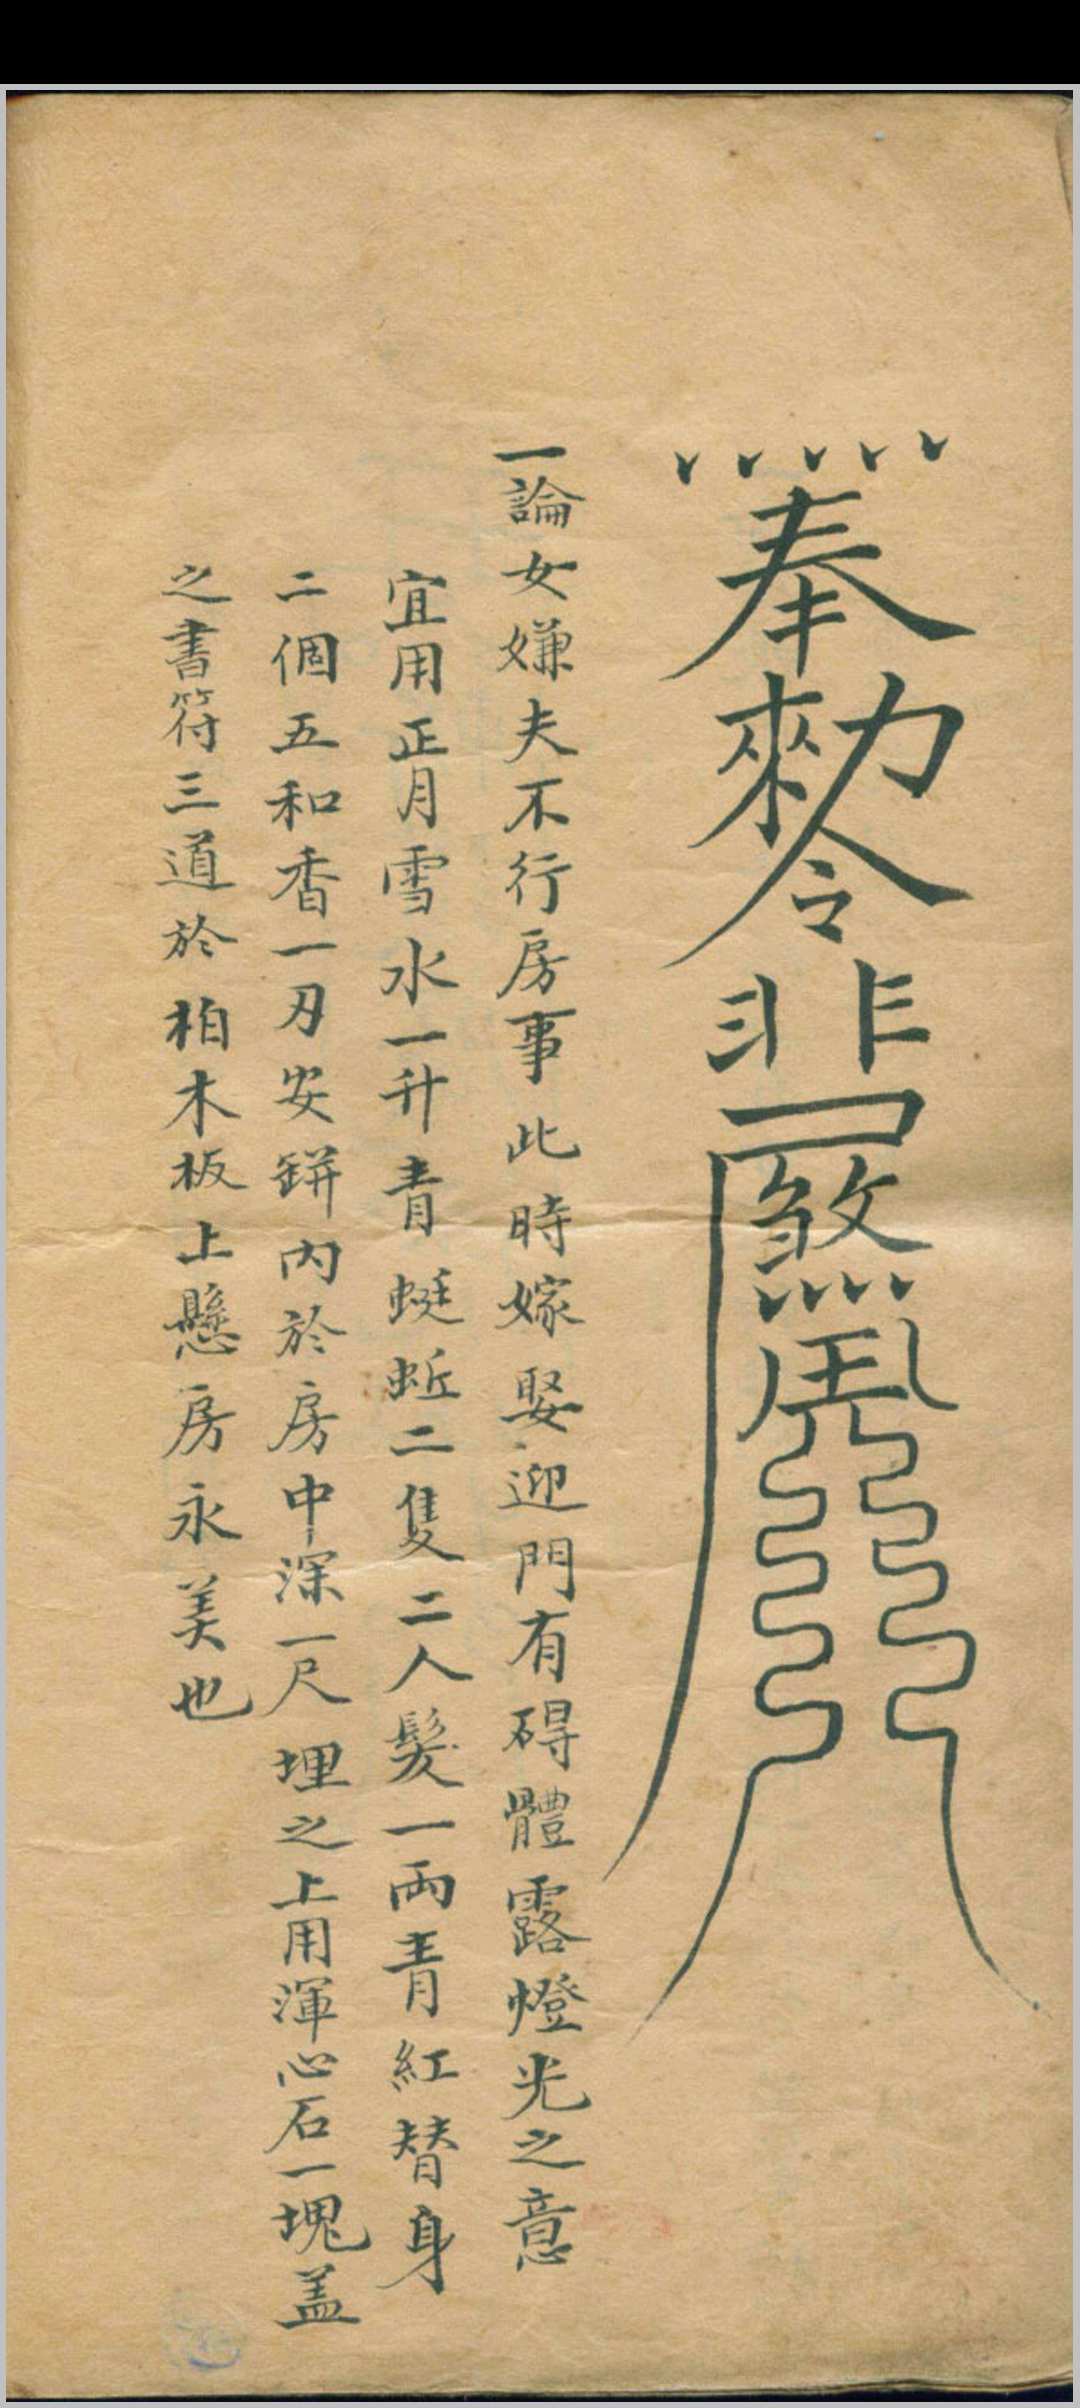 奉勑令
一論女嫌夫不行房事此時嫁娶迎門有碍體露燈光之意
宜用正月雪水一升青蜓蚯二隻二人髮一兩青紅替身
二個五和香一刃安缾內於房中深一尺埋之上用渾心石一塊盖
之書符三道於柏木板上懸房永美也